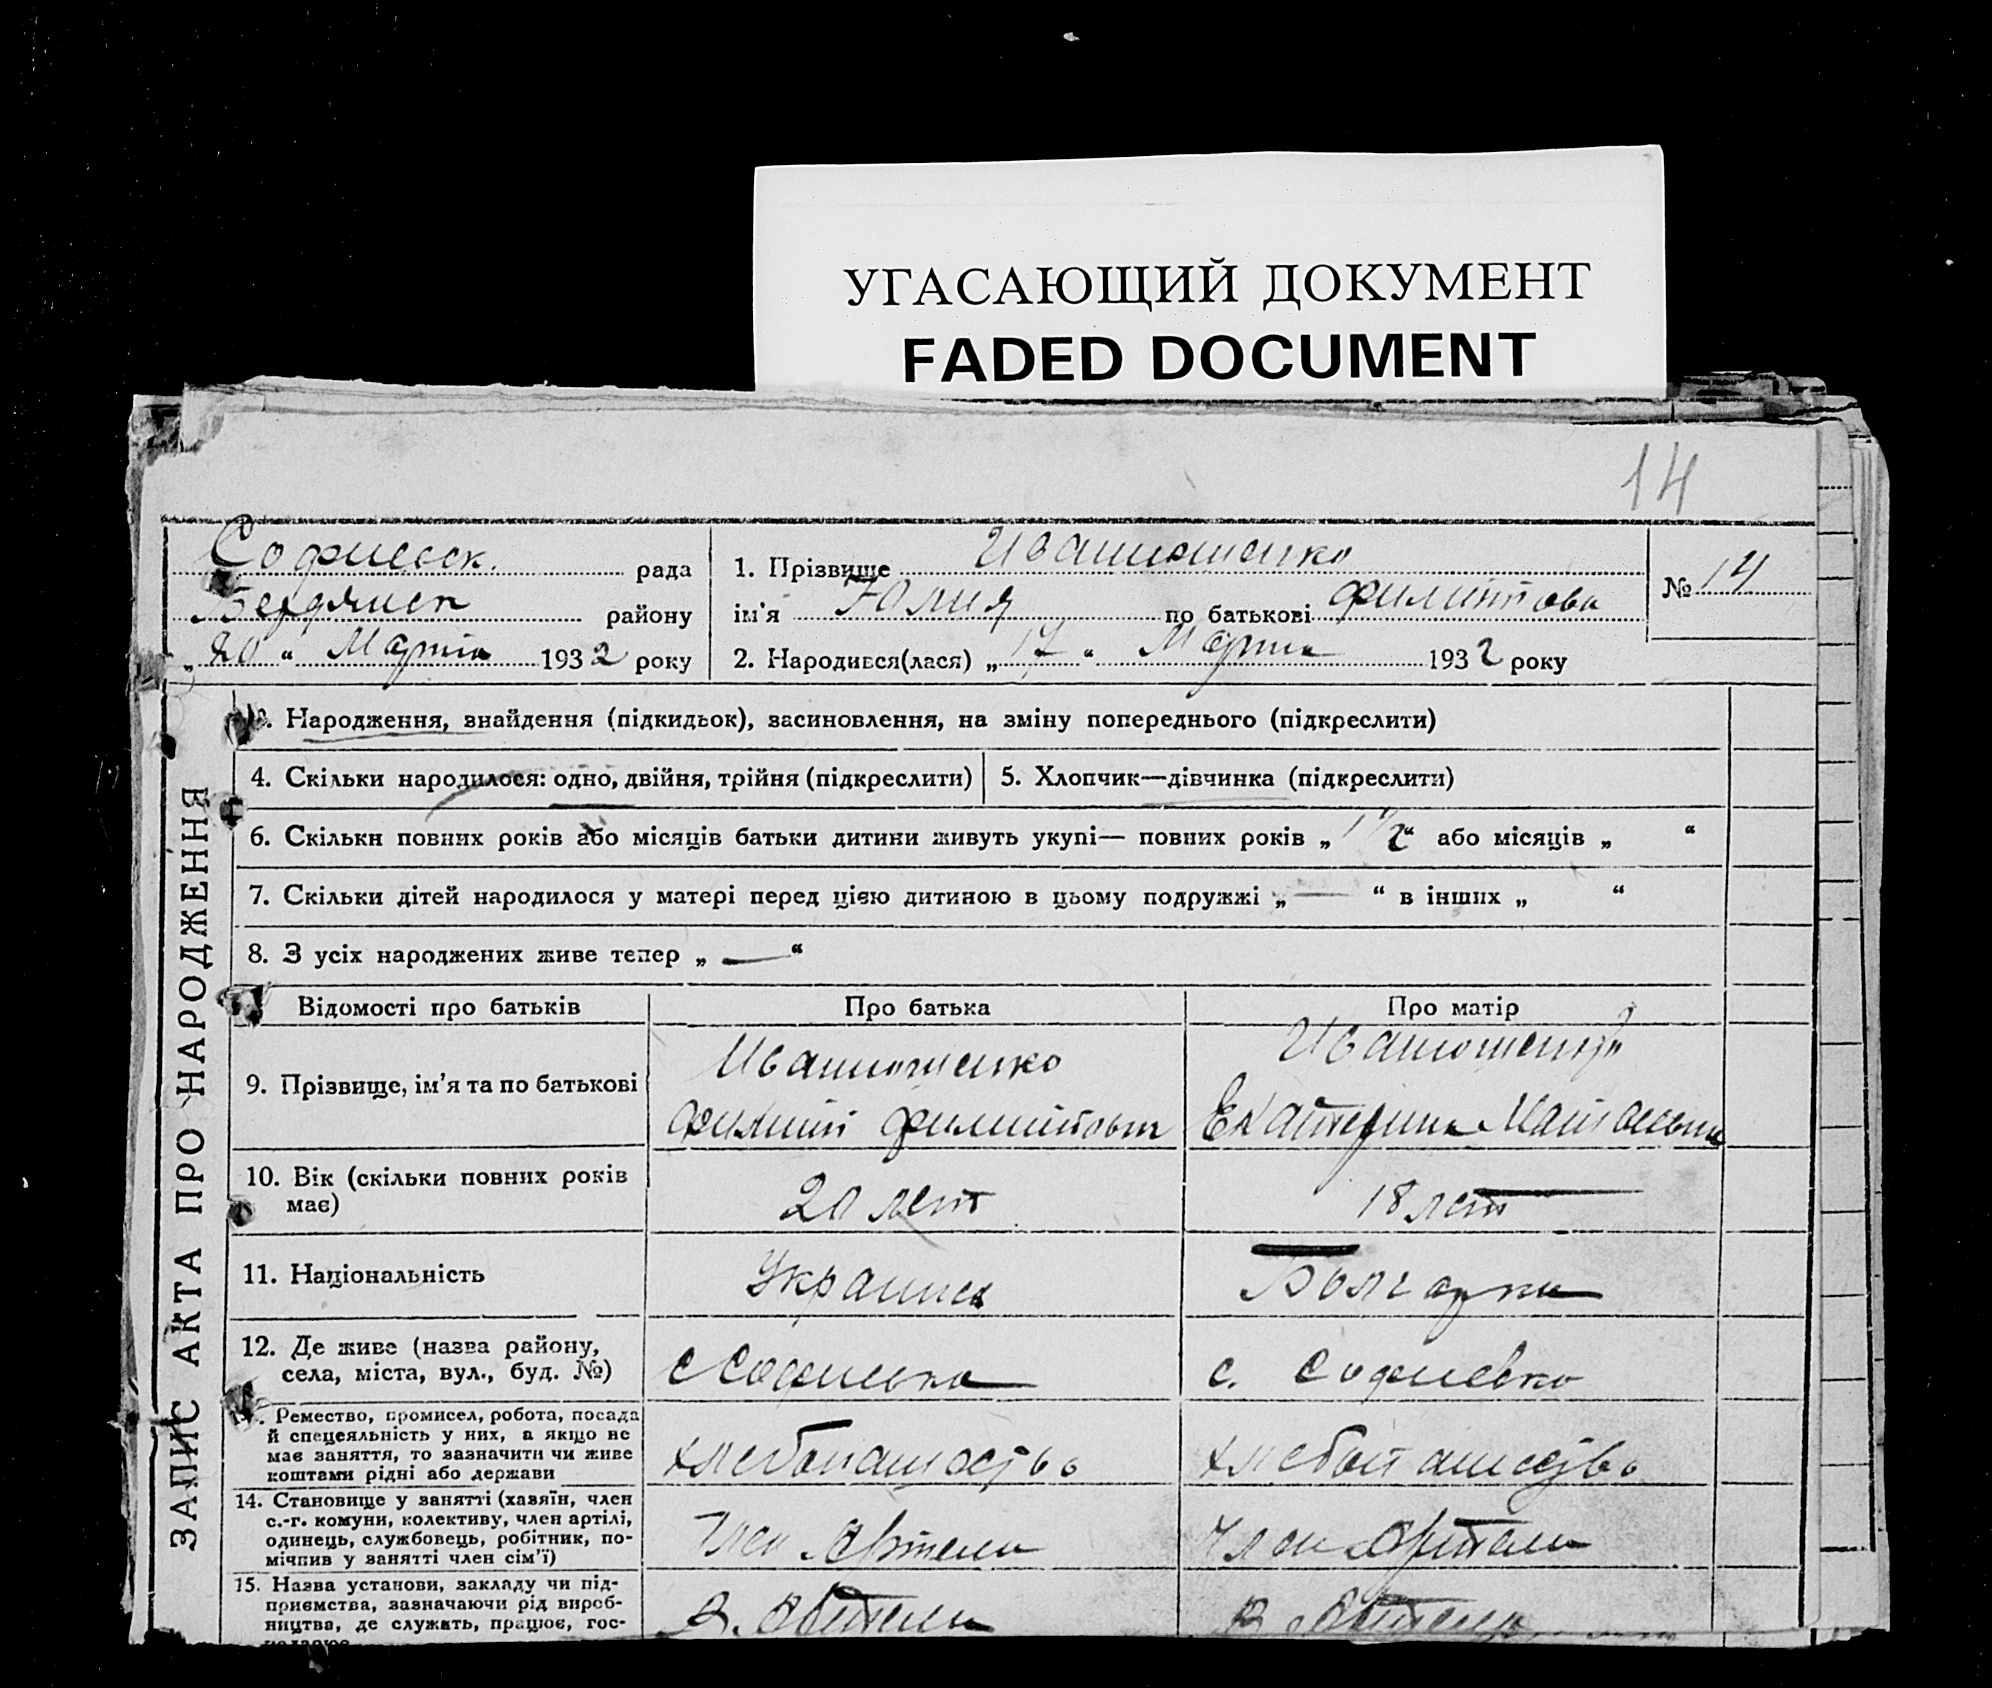 УГАСАЮЩИЙ ДОКУМЕНТ
FADED DOCUMENT
14
ЗАПИС АКТА ПРО НАРОДЖЕННЯ
Софиевск. рада
Бердянск району
„20“ Марта 1932 року
1. Прізвище Иванющенко
ім'я Юлия по батькові Филиппова
2. Народився(лася) „17“ Марта 1932 року
№ 14
3. Народження, знайдення (підкидьок), засиновлення, на зміну попереднього (підкреслити)
4. Скільки народилося: одно, двійня, трійня (підкреслити)
5. Хлопчик—дівчинка (підкреслити)
6. Скільки повних років або місяців батьки дитини живуть укупі— повних років „1 1/2“ або місяців „ “
7. Скільки дітей народилося у матері перед цією дитиною в цьому подружжі „—“ в інших „ “
8. З усіх народжених живе тепер „—“
Відомості про батьків
Про батька
Про матір
9. Прізвище, ім'я та по батькові
Иванющенко
Филипп Филиппович
Иванющенко
Екатерина
10. Вік (скільки повних років
має)
20 лет
18 лет
11. Національність
Украинец
Болгарка
12. Де живе (назва району,
села, міста, вул., буд. №)
с Софиевка
с. Софиевка
13. Ремество, промисел, робота, посада
й спецеяльність у них, а якщо не
має заняття, то зазначити чи живе
коштами рідні або держави
хлебопашество
хлебопашество
14. Становище у занятті (хазяїн, член
с.-г. комуни, колективу, член артілі,
одинець, службовець, робітник, по-
мічпив у занятті член сім'ї)
Член Артели
Член Артели
15. Назва установи, закладу чи під-
приємства, зазначаючи рід вироб-
ництва, де служать, працює, гос-
В. Артели
В Артели